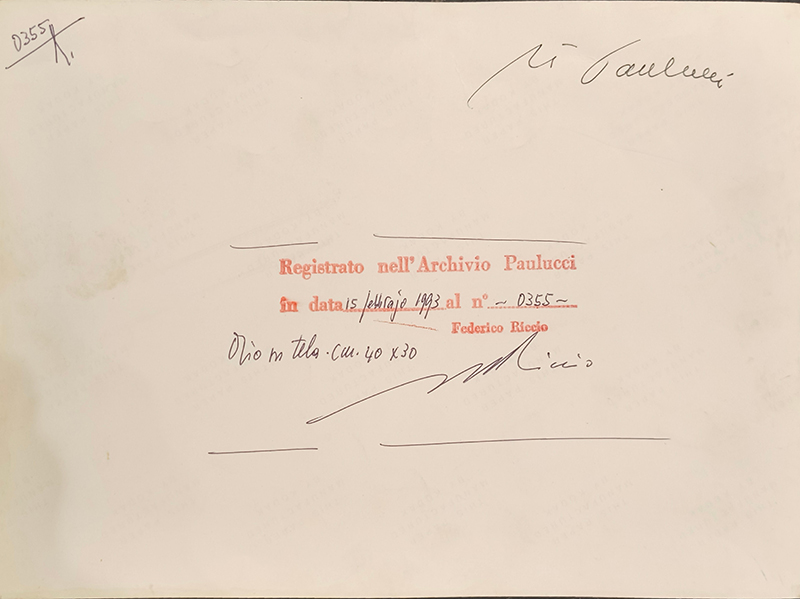 0355
Paulucci
Registrato nell'Archivio Paulucci
in data 15 febbrajo 1993 al n° ~ 0355 ~
Federico Riccio
Olio su tela. cm. 40 x 30
Riccio